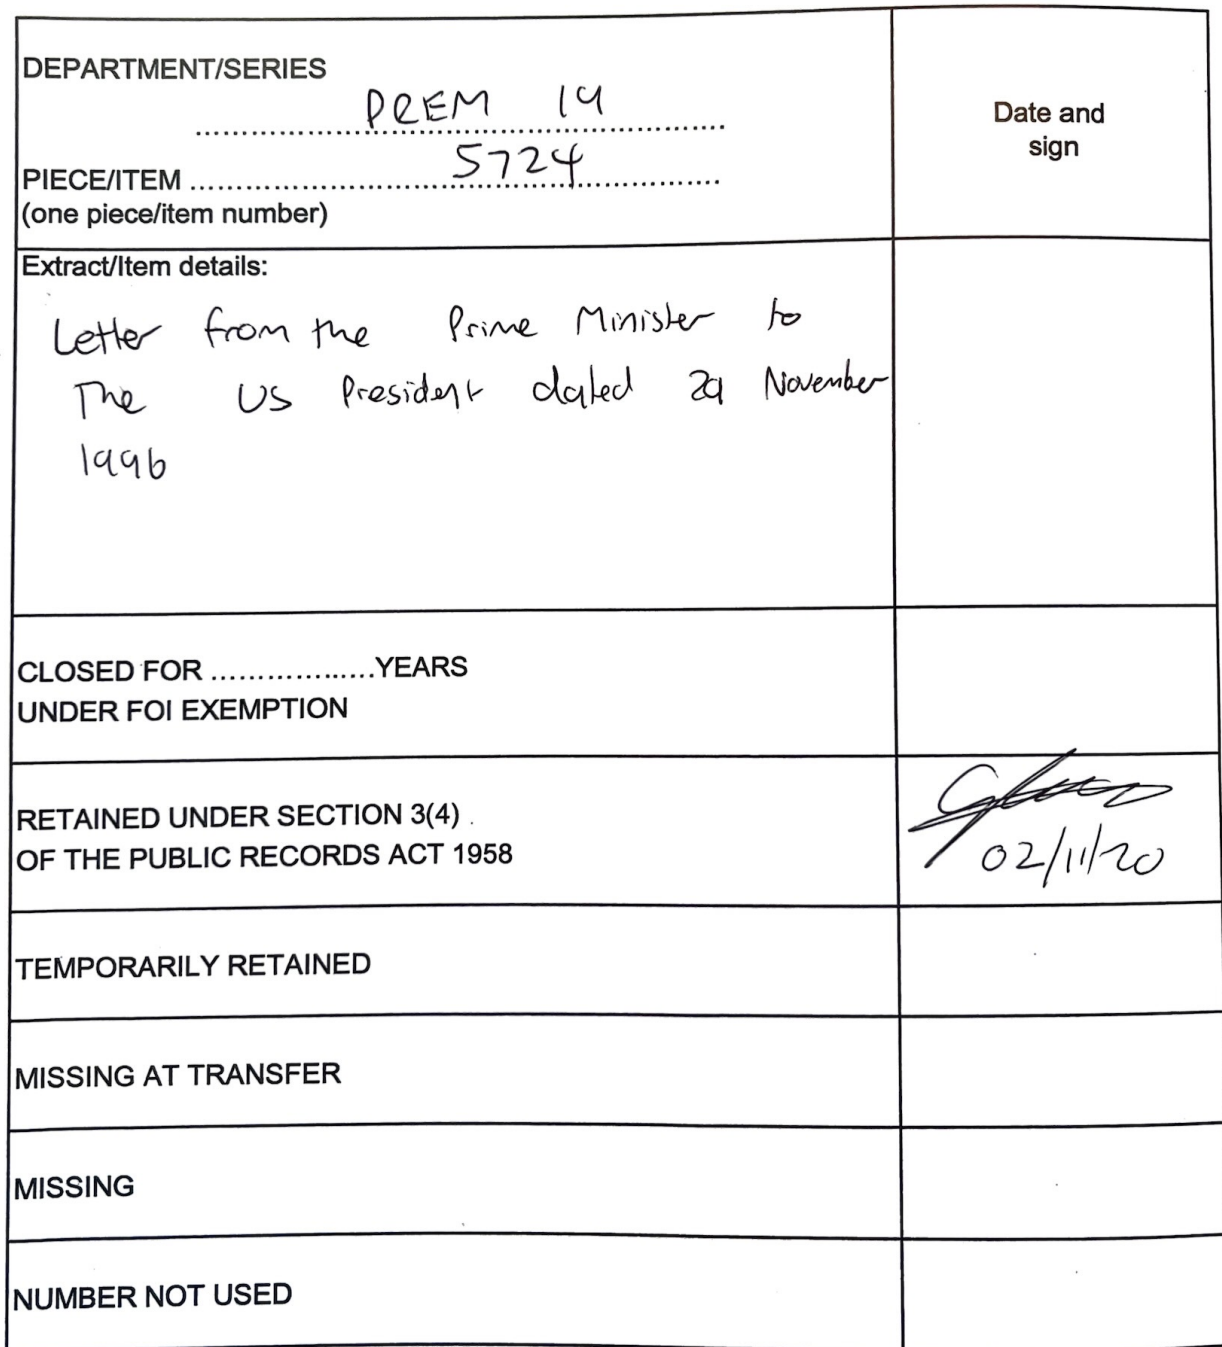 DEPARTMENT/SERIES
PREM 19
Date and
sign
PIECE/ITEM 5724
(one piece/item number)
Extract/Item details:
Letter from the Prime Minister to
The US President dated 29 November
1996
CLOSED FOR ..................YEARS
UNDER FOI EXEMPTION
RETAINED UNDER SECTION 3(4)
OF THE PUBLIC RECORDS ACT 1958
02/11/20
TEMPORARILY RETAINED
MISSING AT TRANSFER
MISSING
NUMBER NOT USED